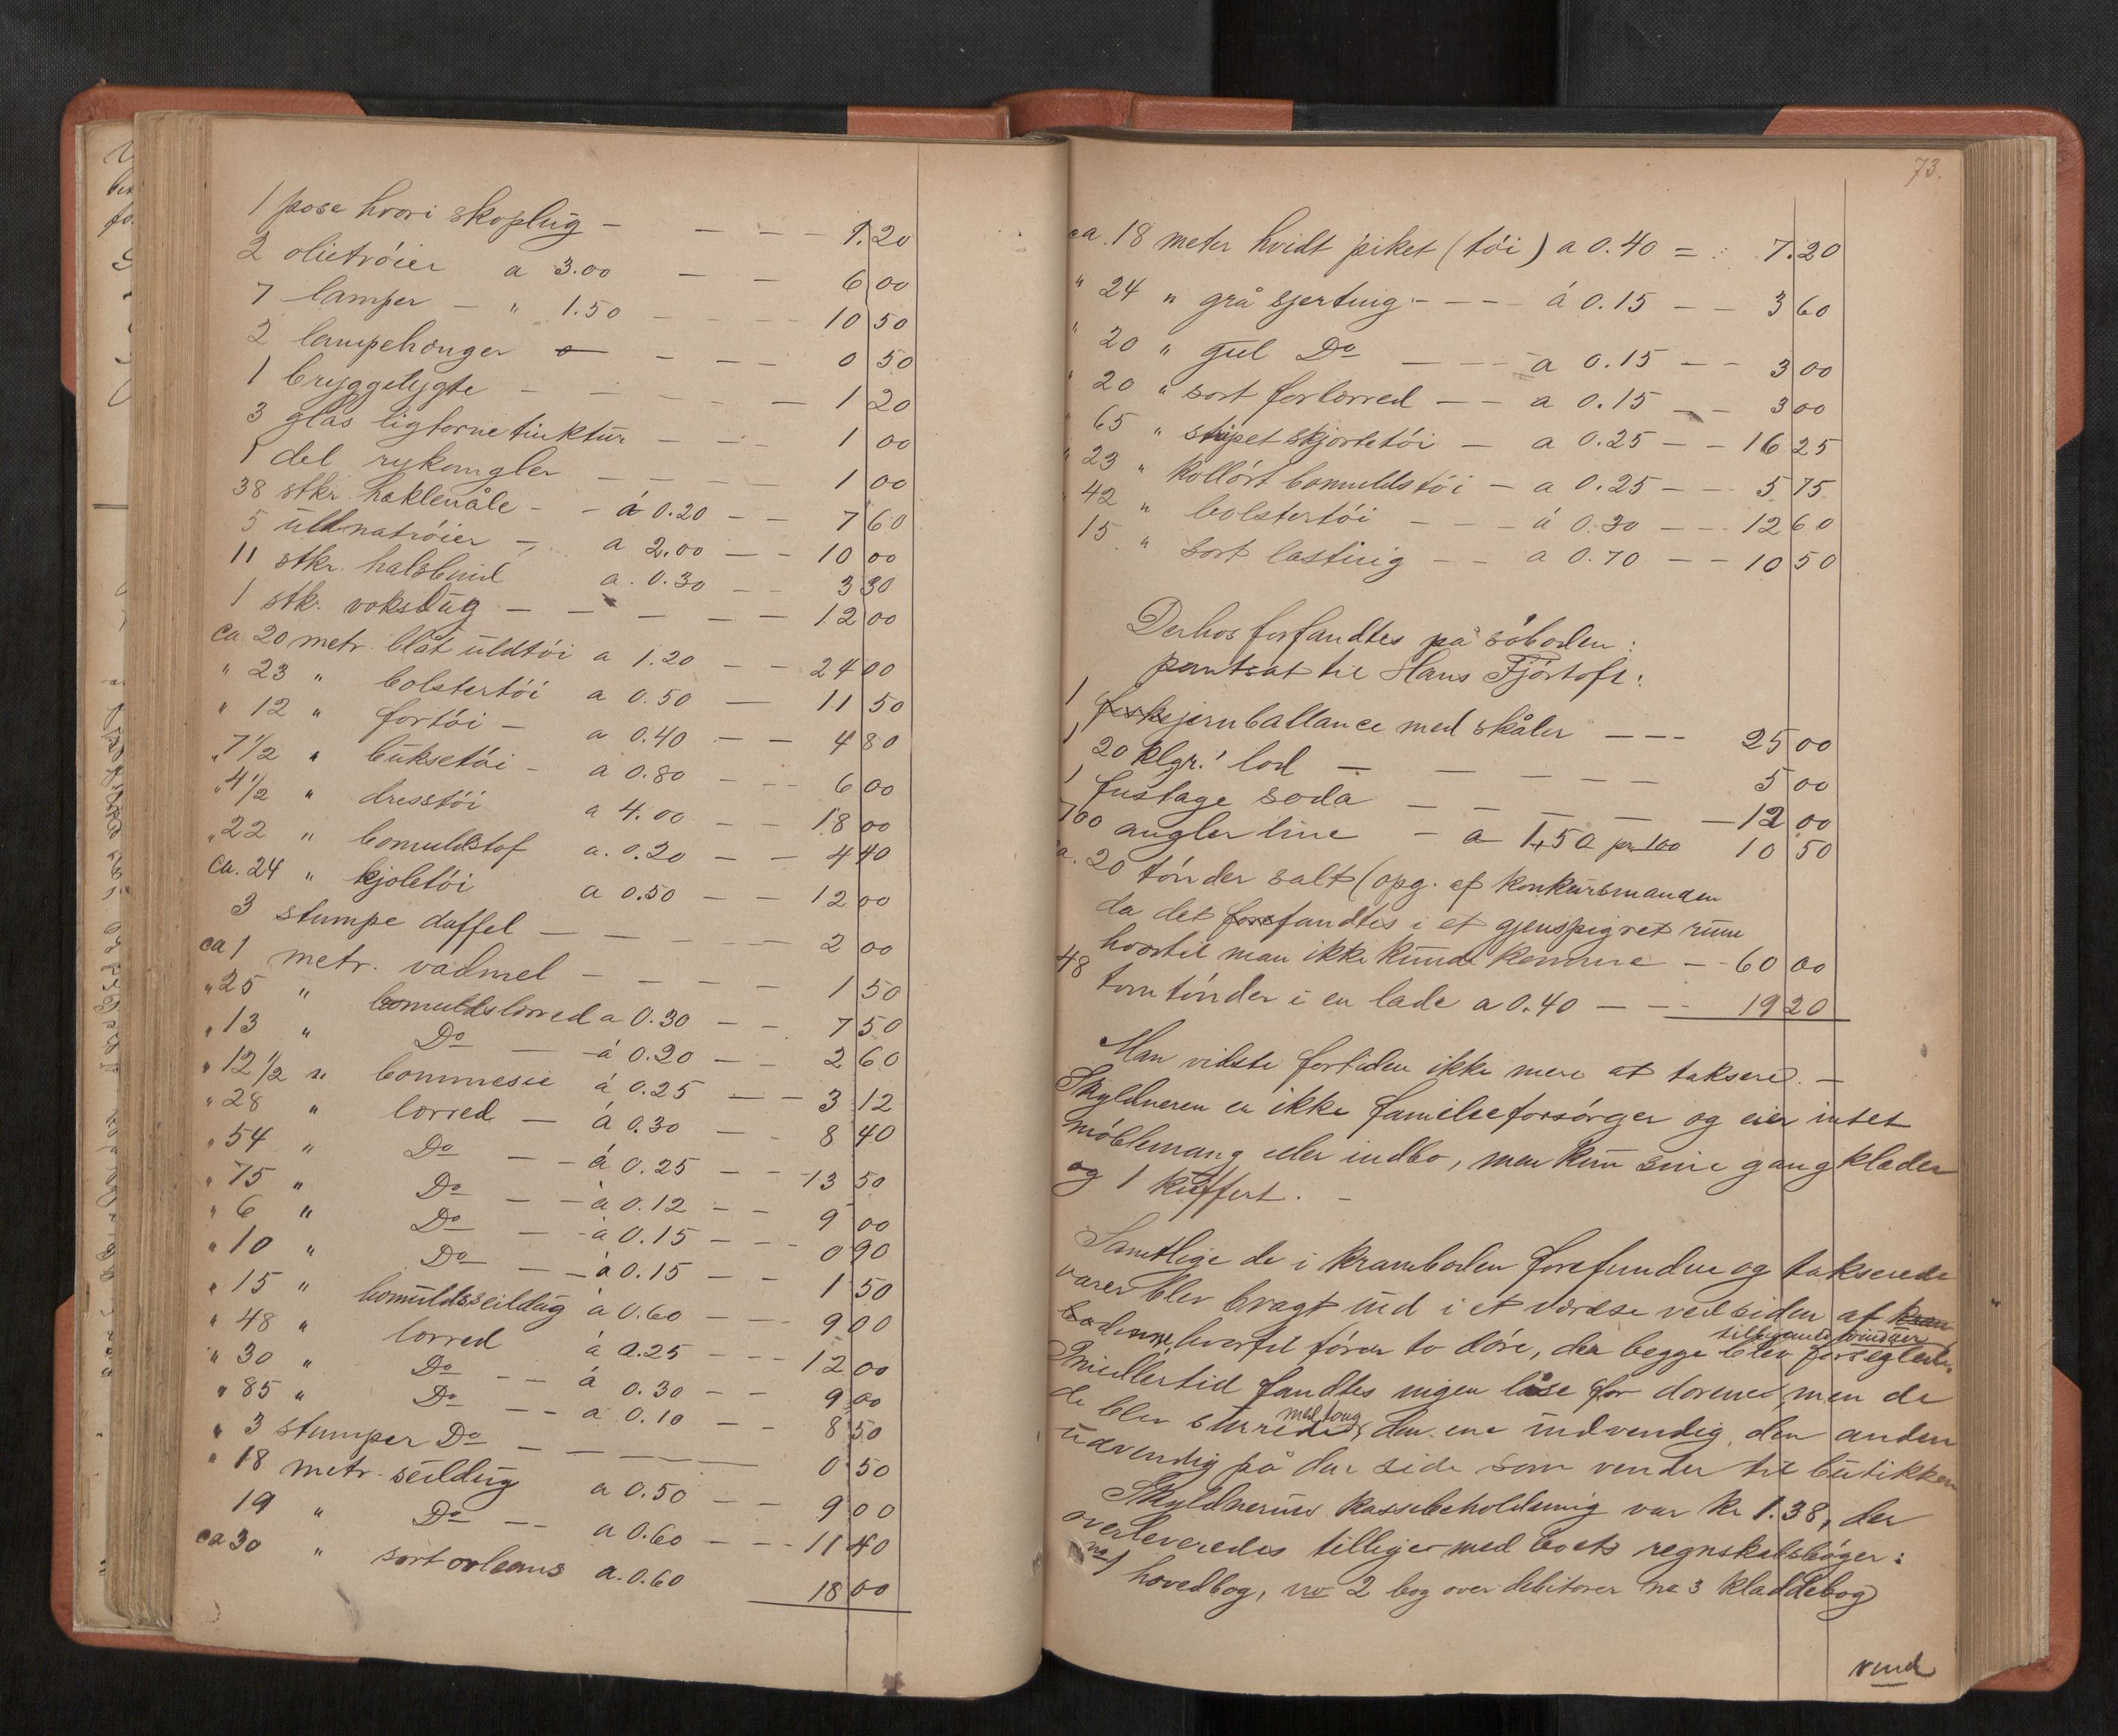 1 pose hvori skoplug - - - - 1.20
2 olietrøier a 3.00 - - 6 00
7 lamper - " 1.50 - - - - 10 50
2 lampehænger - - - - 0 50
1 bryggelygte - - - - - 1 20
3 glas ligtornetinktur - - - 1 00
1 del rykangler - - - - 1 00
38 stkr. heklenåle - - á 0.20 - - 7 60
5 uldnatrøier - a 2.00 - - 10 00
11 stkr. halsbind a. 0.30 - - 3 30
1 stk. voksdug - - - - - 12 00
ca 20 metr. blåt uldtói a 1.20 - - 24 00
" 23 " bolstertói a 0.50 - 11 50
" 12 " fortói - a 0.40 - - 4 80
" 7 1/2 " buksetói - a 0.80 - - 6 00
" 4 1/2 " dresstói a 4.00 - - 18 00
" 22 " bomuldstof a. 0.20 - - 4 40
ca. 24 " kjoletói a 0.50 - - 12 00
3 stumpe duffel - - - - - 2 00
ca 1 metr. vadmel - - - - 1 50
" 25 " bomuldslærred a 0.30 - - 7 50
" 13 " Do - á 0.20 - - 2 60
" 12 1/2 " bommesie á 0.25 - - 3 12
" 28 " lærred - á 0.30 - - 8 40
" 54 " Do - - á 0.25 - - 13 50
" 75 " Do - - á 0.12 - - 9 00
" 6 " Do - á 0.15 - - - 0 90
" 10 " Do - - á 0.15 - - 1 50
" 15 " bomuldsseildug á 0.60 - - - 9 00
" 48 " lærred á 0.25 - - - 12 00
" 30 " Do - - á 0.30 - - - 9 00
" 85 " Do - - a 0.10 - - 8 50
" 3 stumper Do - - - - - - 0 50
" 18 metr. seildug a 0.50 - - 9 00
19 " Do - a 0.60 - - - 11 40
ca 30 " sort orleans a. 0.60 18 00
73.
ca. 18 meter hvidt piket (tói) a 0.40 = : 7.20
" 24 " grå sjerting - - - á 0.15 - - 3 60
" 20 " gul Do - - - a 0.15 - - 3 00
" 20 " sort forlærred - - a 0.15 - - 3 00
" 65 " stripet skjortetói - a 0.25 - - 16 25
" 23 " kollórt bomuldstói - a 0.25 - - 5 75
" 42 " bolstertói - - - á 0.30 - - - 12 60
15. " sort lasting - - a 0.70 - - 10 50
Derhos forfandtes på sóboden:
pantsat til Hans Fjórtoft:
1 jernballance med skåler - - - 25 00
1 20 klgr.' lod - - - - - - 5 00
1 fustage soda - - - - - 12 00
700 angler line - a 1,50 pr 100 10 50
ca. 20 tónder salt (opg. af konkursmanden
da det forefandtes i et gjenspigret rum
hvortil man ikke kunde komme - - 60 00
48 tomtónder i en lade a 0.40 - - - 19 20
Man vidste fortiden ikke mere at taksere. -
Skyldneren er ikke familieforsórger og eier intet
móblemang eller indbo, men kun sine gangklæder
og 1 kuffert. -
Samtlige de i kramboden forefundne og takserede
varer blev bragt ind i et værelse ved siden af kram
bodenne, hvortil fórer to dóre, der begge blev forseglede.
tilligemed vinduer
Imidlertid fandtes ingen låse for dorene, men de
de blev surrede, den ene indvendig, den anden
med toug
udvendig på den side som vender til butikken
Skyldnerens kassebeholdning var kr 1.38, der
overleveredes tilligemed boets regnskabsbóger:
no 1 hovedbog, no 2 bog over debitorer no 3 kladdebog
vend